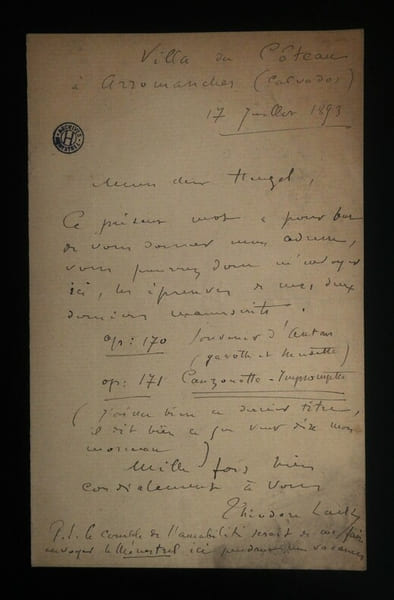 Villa du Côteau
à Arromanches (Calvados)
17 Juillet 1893
ARCHIVES
H
Mon cher Heugel,
Ce présent mot a pour but
de vous donner mon adresse,
vous pourrez donc m'envoyer
ici, les épreuves de mes deux
derniers manuscrits.
op: 170 Souvenir d'Antan
(gavotte et Musette)
op: 171 Canzonetta-Impromptu
(J'aime bien ce dernier titre,
il dit bien ce que veut dire mon
morceau)
Mille fois bien
cordialement à vous
Théodore Lack
P.S. le comble de l'amabilité serait de me faire
envoyer le Ménestrel ici pendant mes vacances